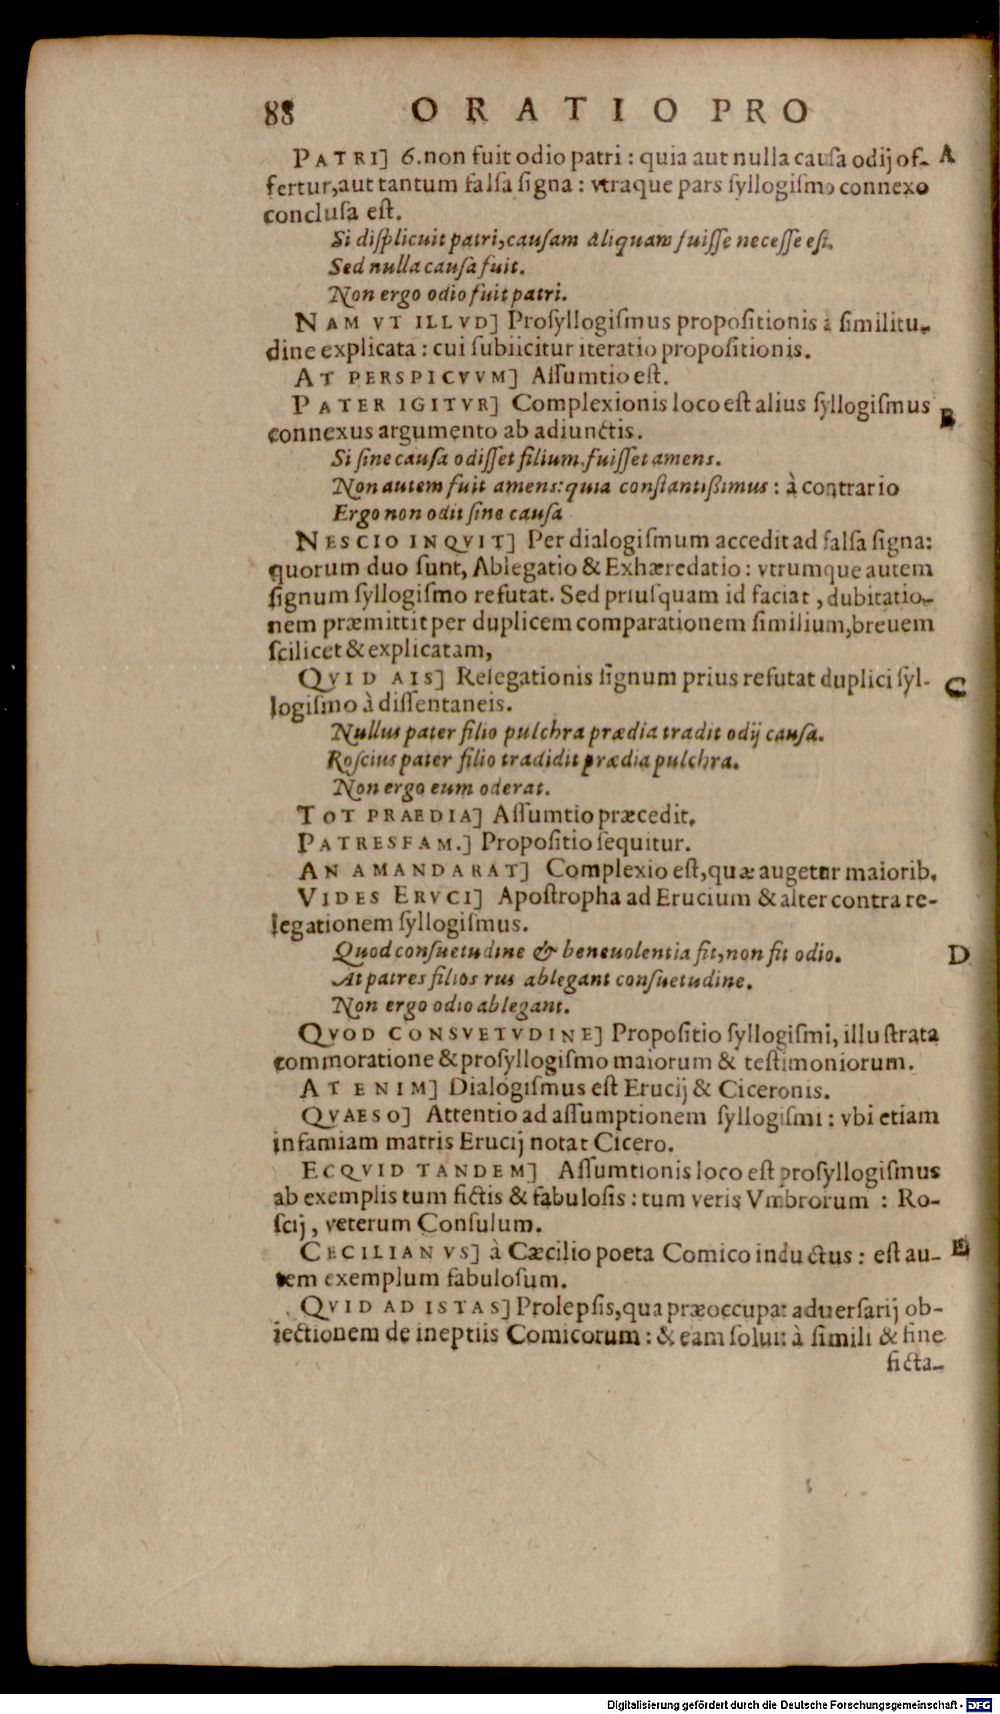 88 ORATIO PRO
PATRI] 6. non fuit odio patri : quia aut nulla cauſa odij of- A
fertur, aut tantum falſa ſigna : vtraque pars ſyllogiſmo connexo
concluſa eſt.
Si diſplicuit patri, cauſam aliquam fuiſſe neceſſe eſt.
Sed nulla cauſa fuit.
Non ergo odio fuit patri.
NAM VT ILLVD] Proſyllogiſmus propoſitionis à ſimilitu-
dine explicata : cui ſubiicitur iteratio propoſitionis.
AT PERSPICVVM] Aſſumtio eſt.
PATER IGITVR] Complexionis loco eſt alius ſyllogiſmus B
connexus argumento ab adiunctis.
Si ſine cauſa odiſſet filium, fuiſſet amens.
Non autem fuit amens: quia conſtantißimus : à contrario
Ergo non odit ſine cauſa
NESCIO INQVIT] Per dialogiſmum accedit ad falſa ſigna:
quorum duo ſunt, Ablegatio & Exhæredatio : vtrumque autem
ſignum ſyllogiſmo refutat. Sed priuſquam id faciat, dubitatio-
nem præmittit per duplicem comparationem ſimilium, breuem
ſcilicet & explicatam,
QVID AIS] Relegationis ſignum prius refutat duplici ſyl- C
logiſmo à diſſentaneis.
Nullus pater filio pulchra prædia tradit odij cauſa.
Roſcius pater filio tradidit prædia pulchra.
Non ergo eum oderat.
TOT PRAEDIA] Aſſumtio præcedit.
PATRESFAM.] Propoſitio ſequitur.
AN AMANDARAT] Complexio eſt, quæ augetur maiorib.
VIDES ERVCI] Apoſtropha ad Erucium & alter contra re-
legationem ſyllogiſmus.
Quod conſuetudine & beneuolentia fit, non fit odio. D
At patres filios rus ablegant conſuetudine.
Non ergo odio ablegant.
QVOD CONSVETVDINE] Propoſitio ſyllogiſmi, illuſtrata
commoratione & proſyllogiſmo maiorum & teſtimoniorum.
AT ENIM] Dialogiſmus eſt Erucij & Ciceronis.
QVAESO] Attentio ad aſſumptionem ſyllogiſmi : vbi etiam
infamiam matris Erucij notat Cicero.
ECQVID TANDEM] Aſſumtionis loco eſt proſyllogiſmus
ab exemplis tum fictis & fabuloſis : tum veris Vmbrorum : Ro-
ſcij, veterum Conſulum.
CECILIANVS] à Cæcilio poeta Comico inductus : eſt au- E
tem exemplum fabuloſum.
QVID AD ISTAS] Prolepſis, qua præoccupat aduerſarij ob-
iectionem de ineptiis Comicorum : & eam ſoluit à ſimili & fine
ficta-
Digitalisierung gefördert durch die Deutsche Forschungsgemeinschaft - DFG